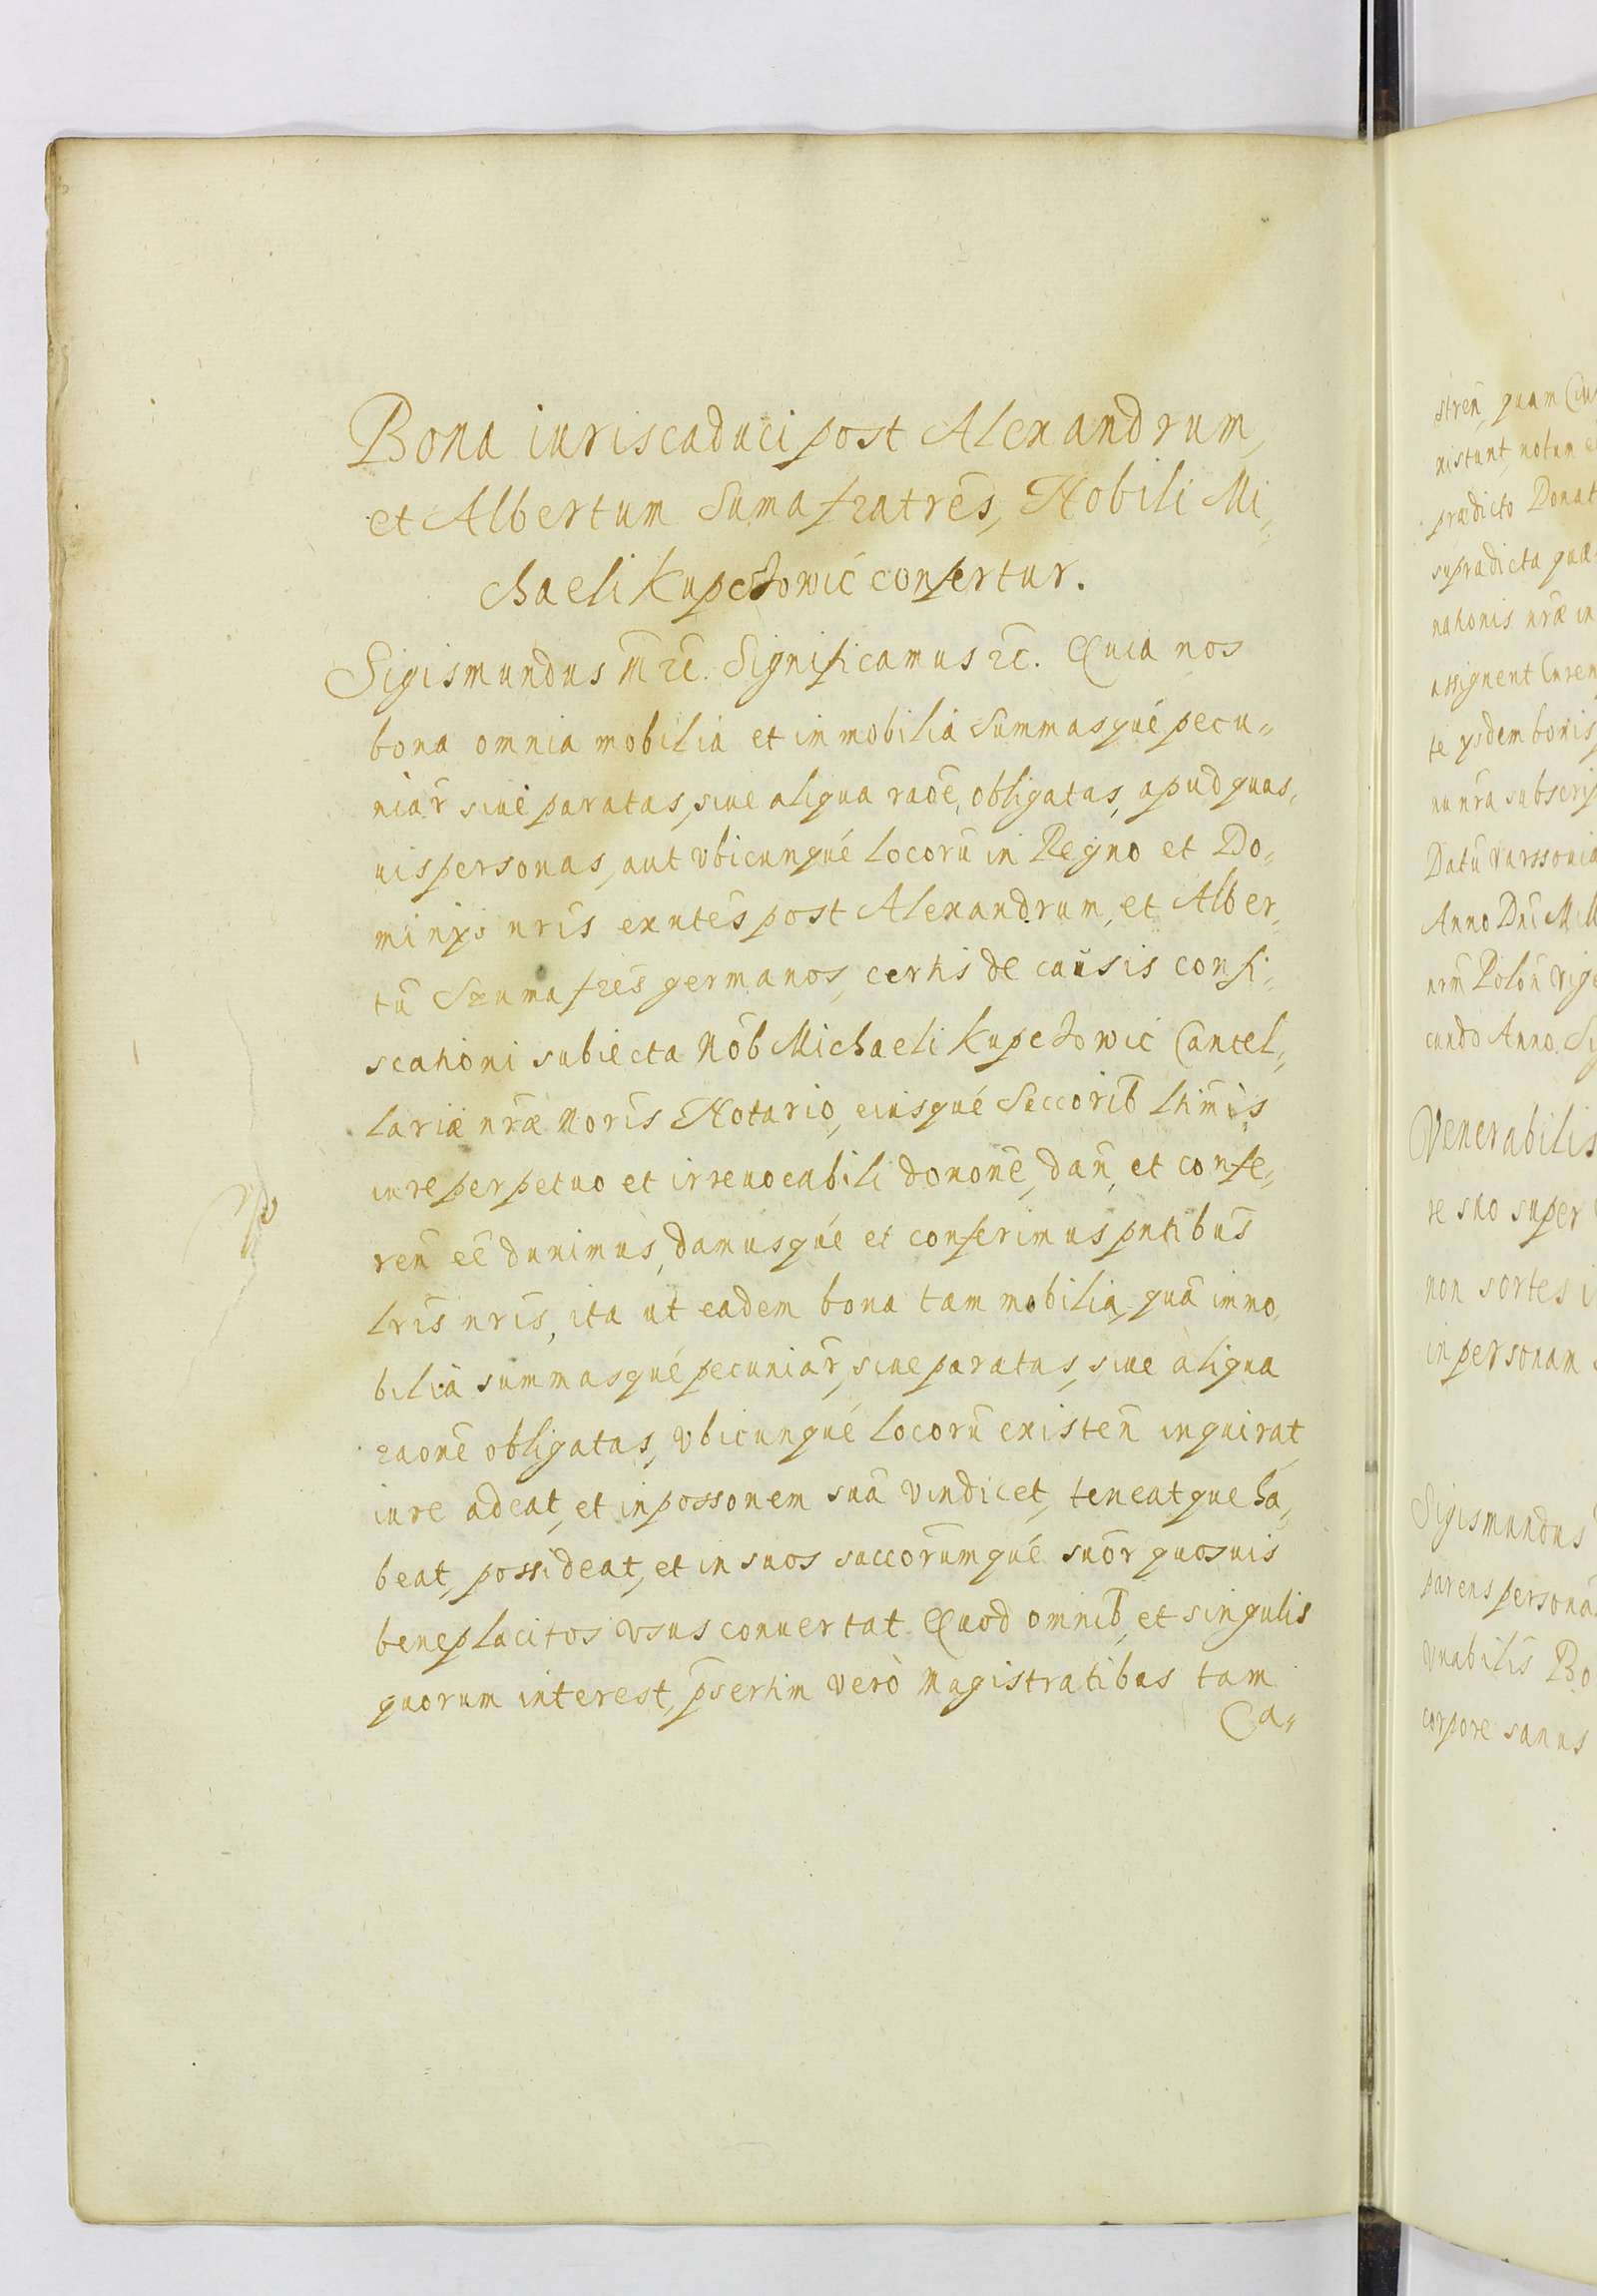 Bona iuriscaduci post Alexandrum,
et Albertum Suma fratrēs, Nobili Mi„
chaeli Kupetowić confertur.
Sigismundus m̄ rc̄. Significamus rc̄. Quia nos
bona omnia mobilia et immobilia summasqué pecu„
niar̄ siué paratas, siue aliqua raōē, obligatas, apud quas„
uis personas, aut vbicunqué locorū in Regno et Do„
minijs nrīs exntēs post Alexandrum, et Alber„
tū Szuma frēs germanos, certis de causis confi„
scationi subiecta Nōb Michaeli Kupetowić Cancel„
lariæ nrāe Noris Notario, eiusqué Seccorib̄ ltimis
iure perpetuo et irreuocabili dononē, dan̄, et confe„
ren̄ eē duximus, damusqué et conferimus pntibus̄
lrīs nrīs, ita ut eadem bona tam mobilia, quā immo„
bilia summasqué pecuniar̄, siue paratas, siue aliqua
raonē obligatas, vbicunqué locorū existen̄ inquirat,
iure adeat, et in possonem suā vindicet, teneatque ha„
beat, possideat, et in suos succorūmqué suōr quosuis
beneplacitos vsus conuertat. Quod omnib̄, et singulis
quorum interest, p̄sertim verò Magistratibus tam
Ca„
stren̄, quam Ciui
xistunt, notum
prædicto Donat
supradicta quæ
nationis nrǣ in
assignent
te ysdem bonis
nu nrā subscrip
Datū Varssouiæ
Anno Dnī Mill
nrm̄ Polon̄ Vige
cundo Anno. Si
Venerabilis
re suo super
non sortes i
in personam
Sigismundus
parens personā
vnabilis̄ Bo
corpore sanus